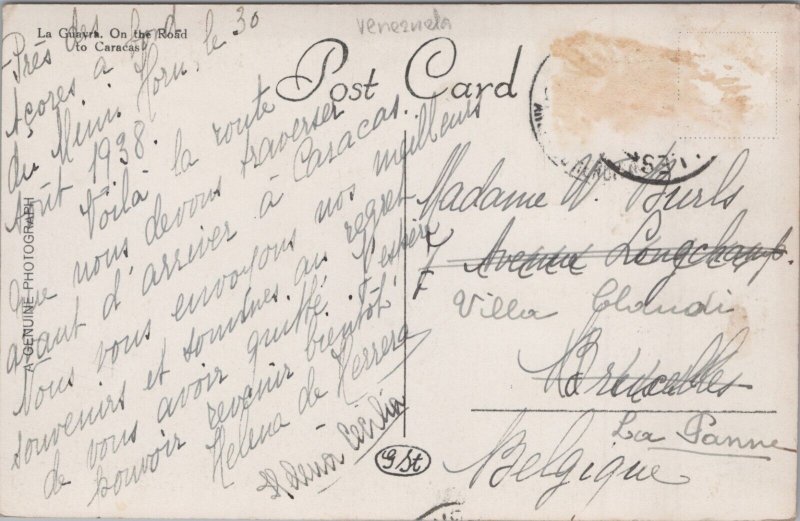 La Guayra. On the Road
to Caracas
Venezuela
Post Card
A GENUINE PHOTOGRAPH
Près des
Açores à bord
du Horn, le 30
Août 1938.
Voilà la route
que nous devons traverser
avant d'arriver à Caracas.
Nous vous envoyons nos meilleurs
souvenirs et sommes au regret
de vous avoir quitté. J'espère
pouvoir revenir bientôt
Helena de Herrera
Cecilia
Madame W. Burls
Avenue Longchamp.
Villa
Bruxelles
La Panne
Belgique
G St